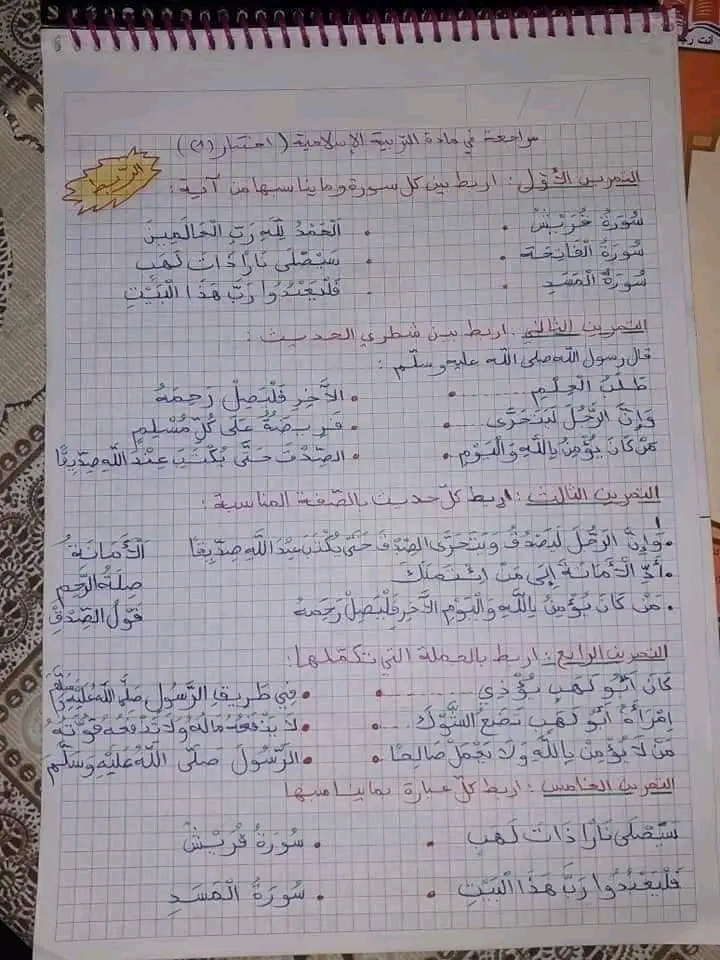 أنت رجل
مراجعة في مادة التربية الإسلامية (اختبار (1))
الربط
التمرين الأول: اربط بين كل سورة وما يناسبها من آية:
سُورَةُ قُرَيْشٍ . . الْحَمْدُ لِلَّهِ رَبِّ الْعَالَمِينَ
سُورَةُ الْفَاتِحَة . . سَيَصْلَى نَارًا ذَاتَ لَهَبٍ
سُورَةُ الْمَسَدِ . . فَلْيَعْبُدُوا رَبَّ هَذَا الْبَيْتِ
التمرين الثاني: اربط بين شطري الحديث:
قال رسول الله صلى الله عليه وسلم:
طَلَبُ الْعِلْمِ ........ . . الآخِرِ فَلْيَصِلْ رَحِمَهُ
وَإِنَّ الرَّجُلَ لَيَتَحَرَّى ........ . . فَرِيضَةٌ عَلَى كُلِّ مُسْلِمٍ
مَنْ كَانَ يُؤْمِنُ بِاللَّهِ وَالْيَوْمِ . . الصِّدْقَ حَتَّى يُكْتَبَ عِنْدَ اللَّهِ صِدِّيقًا
التمرين الثالث: اربط كل حديث بالصفة المناسبة:
. وَإِنَّ الرَّجُلَ لَيَصْدُقُ وَيَتَحَرَّى الصِّدْقَ حَتَّى يُكْتَبَ عِنْدَ اللَّهِ صِدِّيقًا الْأَمَانَةُ
. أَدِّ الْأَمَانَةَ إِلَى مَنْ ائْتَمَنَكَ صِلَةُ الرَّحِمِ
. مَنْ كَانَ يُؤْمِنُ بِاللَّهِ وَالْيَوْمِ الْآخِرِ فَلْيَصِلْ رَحِمَهُ قَوْلُ الصِّدْقِ
التمرين الرابع: اربط بالجملة التي تكملها:
كَانَ أَبُو لَهَبٍ يُؤْذِي ........ . . فِي طَرِيقِ الرَّسُولِ صَلَّى اللَّهُ عَلَيْهِ وَسَلَّمَ
امْرَأَةُ أَبُو لَهَبٍ تَضَعُ الشَّوْكَ ... . . لَا يَنْفَعُهُ مَالُهُ وَلَا تَنْفَعُهُ قُوَّتُهُ
مَنْ لَا يُؤْمِنُ بِاللَّهِ وَلَا يَعْمَلُ صَالِحًا . . الرَّسُولَ صَلَّى اللَّهُ عَلَيْهِ وَسَلَّمَ
التمرين الخامس: اربط كل عبارة بما يناسبها
سَيَصْلَى نَارًا ذَاتَ لَهَبٍ . . سُورَةُ قُرَيْشٍ
فَلْيَعْبُدُوا رَبَّ هَذَا الْبَيْتِ . . سُورَةُ الْمَسَدِ